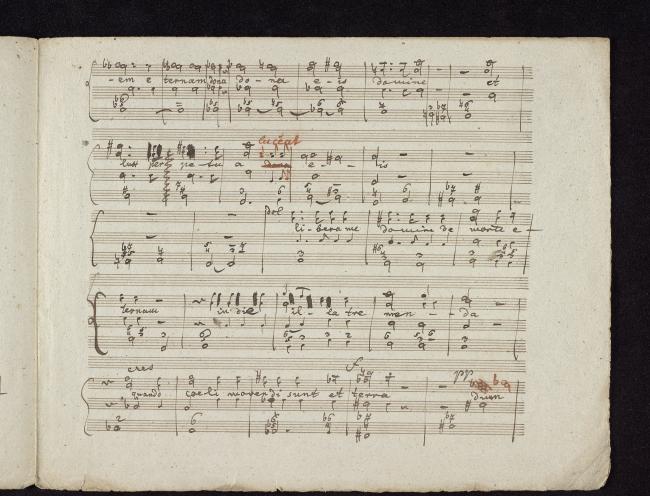 -em e ternam dona do-na e-is domine et
luceat
lux per pe-tu a e - is
Dol
li-bera me domine de morte e-
ternam in die il-la tre men - da
cres f pp
quando coeli movendi sunt et terra dum